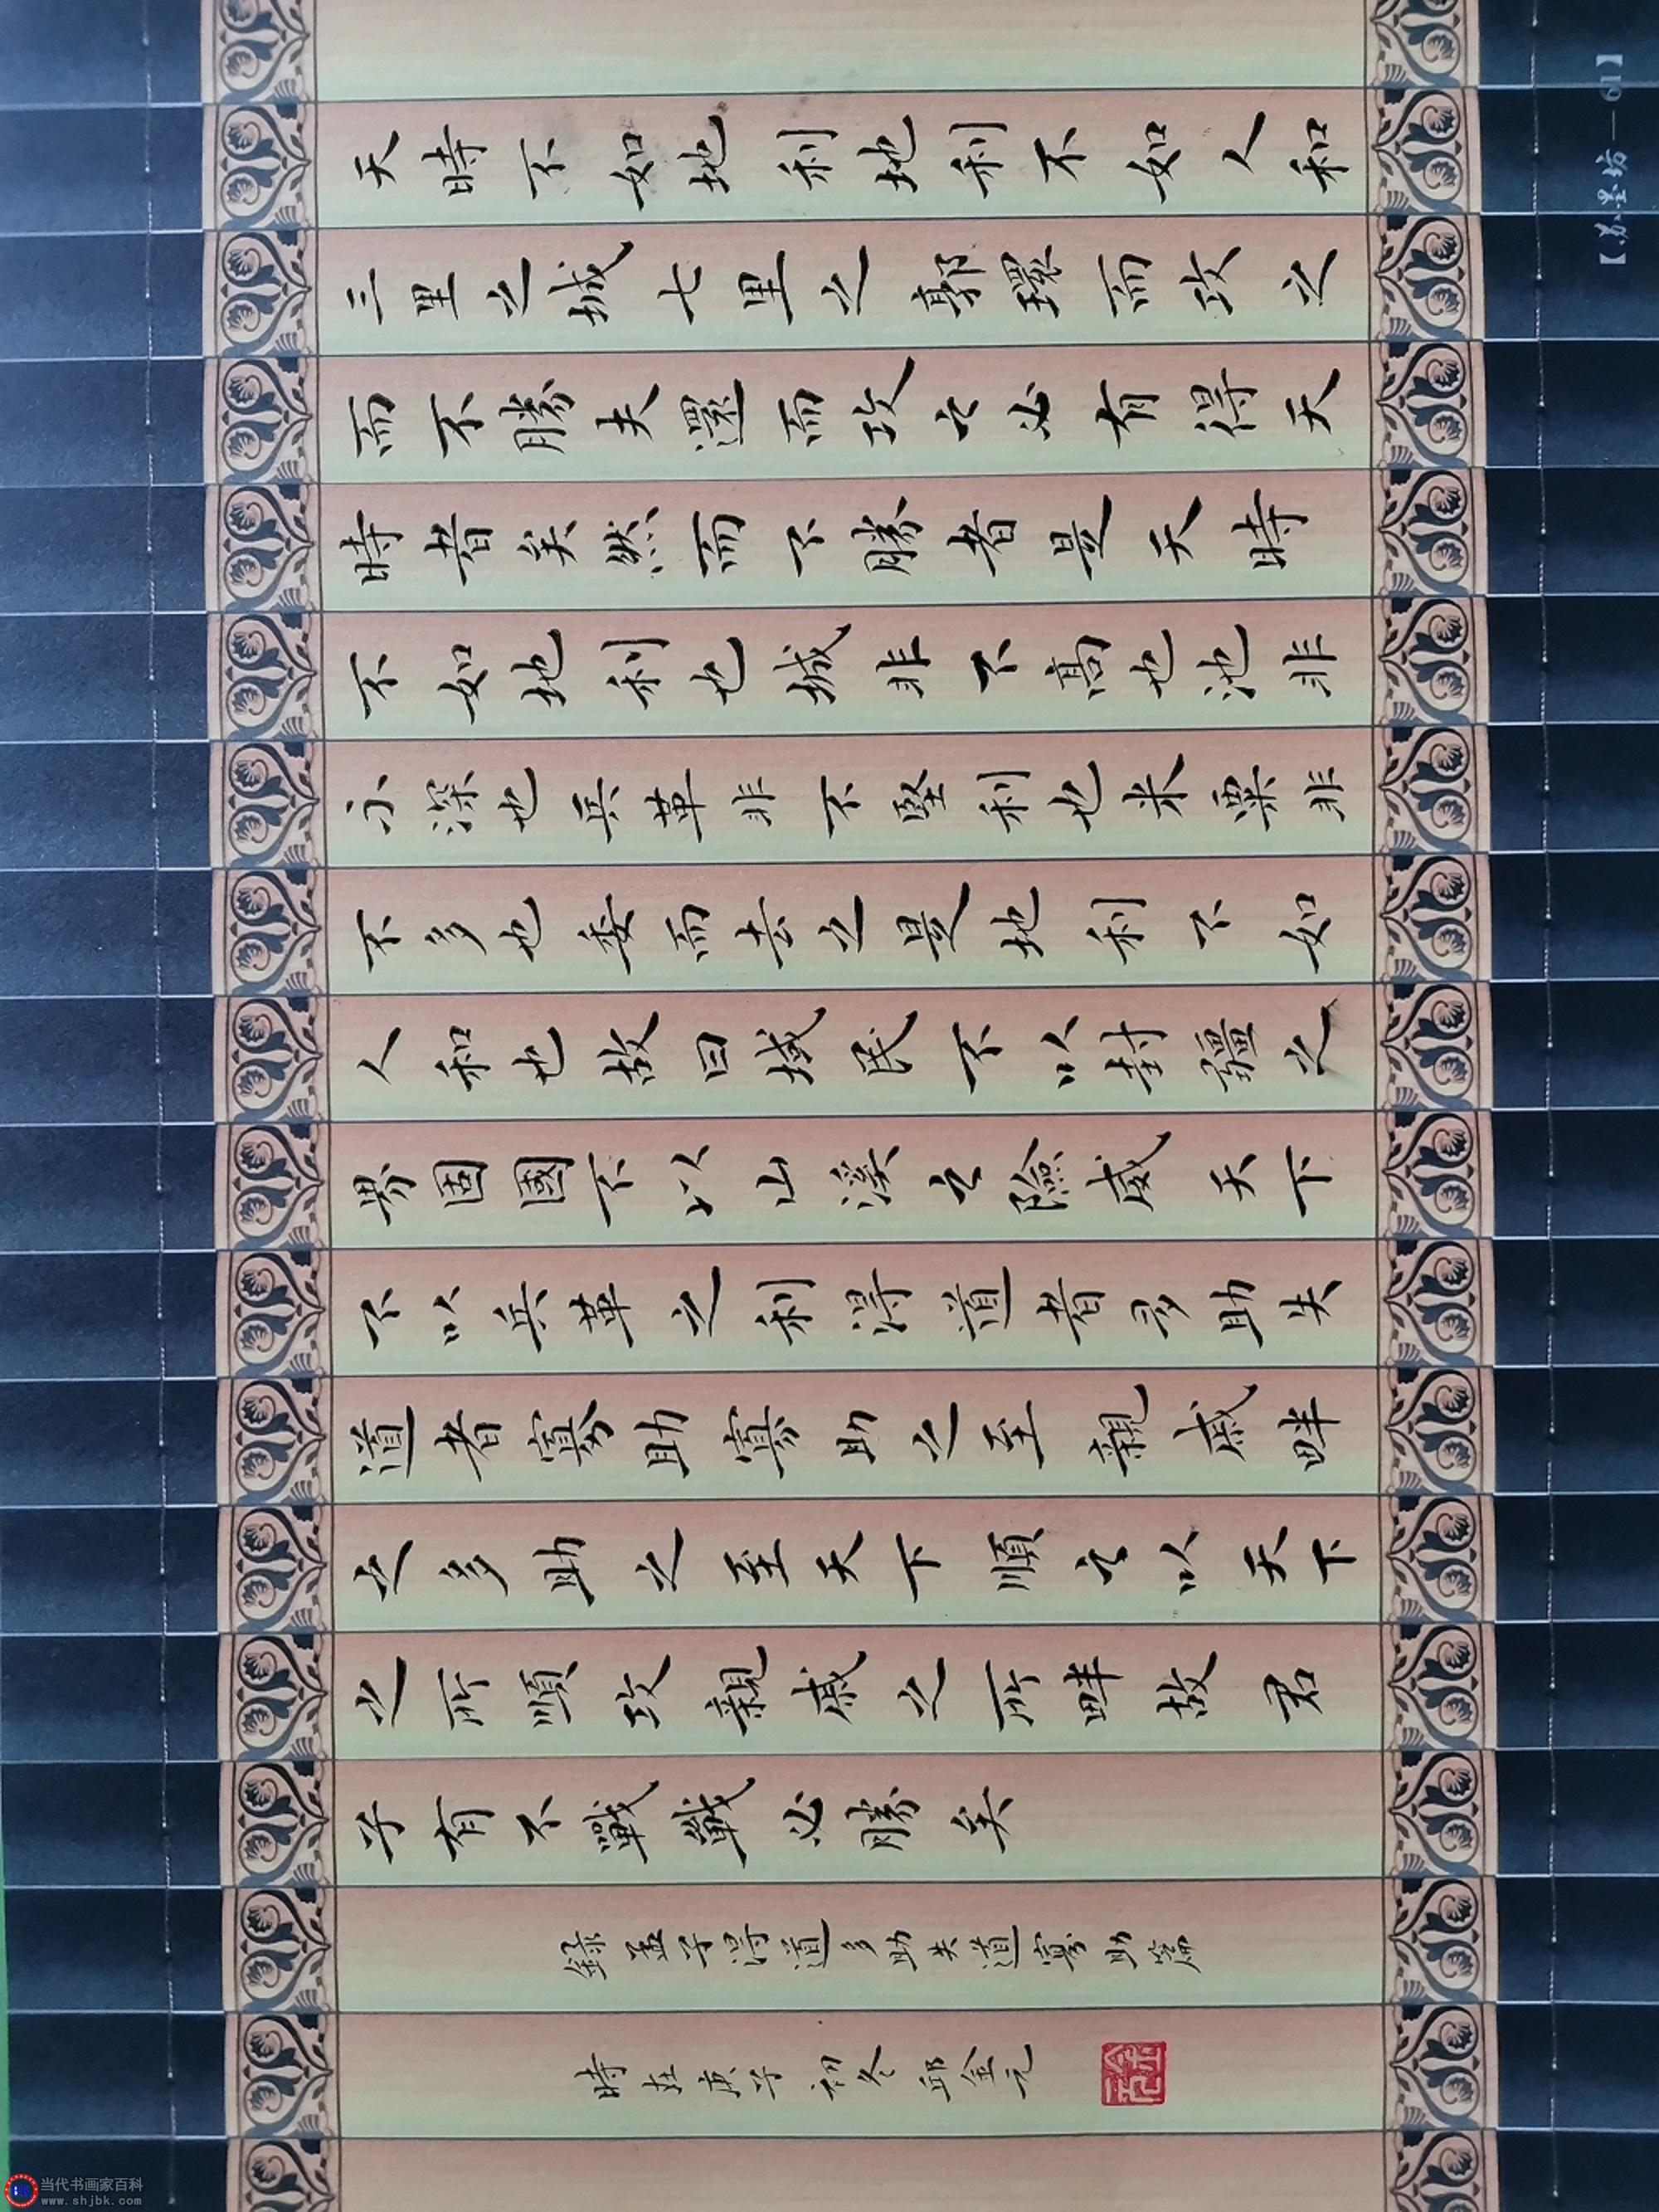 天時不如地利地利不如人和
三里之城七里之郭環而攻之
而不勝夫還而攻之必有得天
時者矣然而不勝者是天時
不如地利也城非不高也池非
不深也兵革非不堅利也米粟非
不多也委而去之是地利不如
人和也故曰域民不以封疆之
界固國不以山溪之險威天下
不以兵革之利得道者多助失
道者寡助寡助之至親戚畔
之多助之至天下順之以天下
之所順攻親戚之所畔故君
子有不戰戰必勝矣
錄孟子得道多助失道寡助篇
時在庚子初冬邱金元
金元
【苏墨坊—61】
当代书画家百科
www.shjbk.com